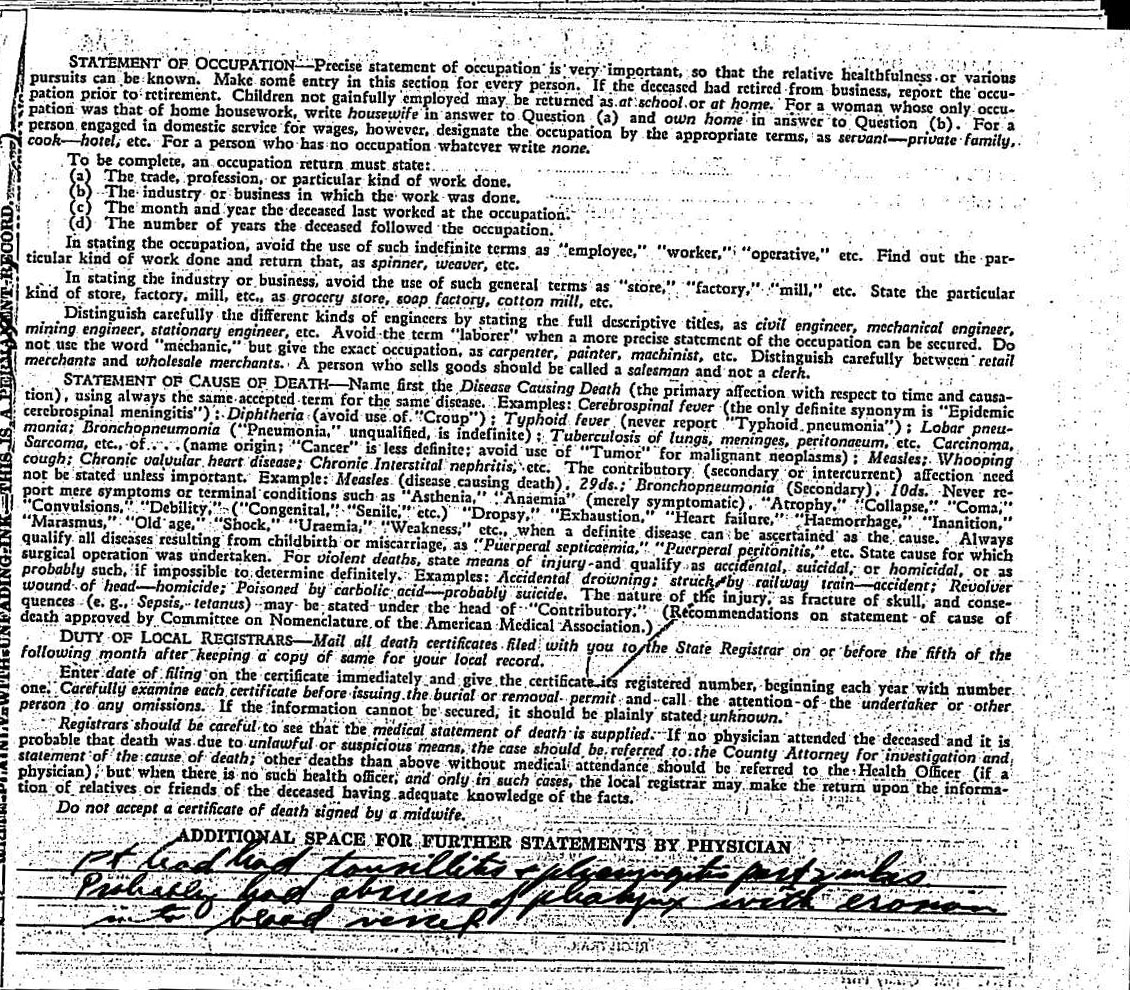 STATEMENT OF OCCUPATION—Precise statement of occupation is very important, so that the relative healthfulness or various
pursuits can be known. Make some entry in this section for every person. If the deceased had retired from business, report the occu-
pation prior to retirement. Children not gainfully employed may be returned as at school or at home. For a woman whose only occu-
pation was that of home housework, write housewife in answer to Question (a) and own home in answer to Question (b). For a
person engaged in domestic service for wages, however, designate the occupation by the appropriate terms, as servant—private family,
cook—hotel, etc. For a person who has no occupation whatever write none.
To be complete, an occupation return must state:
(a) The trade, profession, or particular kind of work done.
(b) The industry or business in which the work was done.
(c) The month and year the deceased last worked at the occupation.
(d) The number of years the deceased followed the occupation.
In stating the occupation, avoid the use of such indefinite terms as "employee," "worker," "operative," etc. Find out the par-
ticular kind of work done and return that, as spinner, weaver, etc.
In stating the industry or business, avoid the use of such general terms as "store," "factory," "mill," etc. State the particular
kind of store, factory, mill, etc., as grocery store, soap factory, cotton mill, etc.
Distinguish carefully the different kinds of engineers by stating the full descriptive titles, as civil engineer, mechanical engineer,
mining engineer, stationary engineer, etc. Avoid the term "laborer" when a more precise statement of the occupation can be secured. Do
not use the word "mechanic," but give the exact occupation, as carpenter, painter, machinist, etc. Distinguish carefully between retail
merchants and wholesale merchants. A person who sells goods should be called a salesman and not a clerk.
STATEMENT OF CAUSE OF DEATH—Name first the Disease Causing Death (the primary affection with respect to time and causa-
tion), using always the same accepted term for the same disease. Examples: Cerebrospinal fever (the only definite synonym is "Epidemic
cerebrospinal meningitis"); Diphtheria (avoid use of "Croup"); Typhoid fever (never report "Typhoid pneumonia"); Lobar pneu-
monia; Bronchopneumonia ("Pneumonia," unqualified, is indefinite); Tuberculosis of lungs, meninges, peritonaeum, etc. Carcinoma,
Sarcoma, etc., of . . . . (name origin; "Cancer" is less definite; avoid use of "Tumor" for malignant neoplasms); Measles; Whooping
cough; Chronic valvular heart disease; Chronic Interstital nephritis, etc. The contributory (secondary or intercurrent) affection need
not be stated unless important. Example: Measles (disease causing death), 29ds.; Bronchopneumonia (Secondary), 10ds. Never re-
port mere symptoms or terminal conditions such as "Asthenia," "Anaemia" (merely symptomatic), "Atrophy," "Collapse," "Coma,"
"Convulsions," "Debility," ("Congenital," "Senile," etc.) "Dropsy," "Exhaustion," "Heart failure," "Haemorrhage," "Inanition,"
"Marasmus," "Old age," "Shock," "Uraemia," "Weakness," etc., when a definite disease can be ascertained as the cause. Always
qualify all diseases resulting from childbirth or miscarriage, as "Puerperal septicaemia," "Puerperal peritonitis," etc. State cause for which
surgical operation was undertaken. For violent deaths, state means of injury and qualify as accidental, suicidal, or homicidal, or as
probably such, if impossible to determine definitely. Examples: Accidental drowning; struck by railway train—accident; Revolver
wound of head—homicide; Poisoned by carbolic acid—probably suicide. The nature of the injury, as fracture of skull, and conse-
quences (e. g., Sepsis, tetanus) may be stated under the head of "Contributory." (Recommendations on statement of cause of
death approved by Committee on Nomenclature of the American Medical Association.)
DUTY OF LOCAL REGISTRARS—Mail all death certificates filed with you to the State Registrar on or before the fifth of the
following month after keeping a copy of same for your local record.
Enter date of filing on the certificate immediately and give the certificate its registered number, beginning each year with number
one. Carefully examine each certificate before issuing the burial or removal permit and call the attention of the undertaker or other
person to any omissions. If the information cannot be secured, it should be plainly stated unknown.
Registrars should be careful to see that the medical statement of death is supplied. If no physician attended the deceased and it is
probable that death was due to unlawful or suspicious means, the case should be referred to the County Attorney for investigation and
statement of the cause of death; other deaths than above without medical attendance should be referred to the Health Officer (if a
physician), but when there is no such health officer, and only in such cases, the local registrar may make the return upon the informa-
tion of relatives or friends of the deceased having adequate knowledge of the facts.
Do not accept a certificate of death signed by a midwife.
ADDITIONAL SPACE FOR FURTHER STATEMENTS BY PHYSICIAN
Pt had had tonsillitis & pharyngitis past 2 wks.
Probably had abscess of pharynx with erosion
into blood vessel
WRITE PLAINLY WITH UNFADING INK—THIS IS A PERMANENT RECORD.